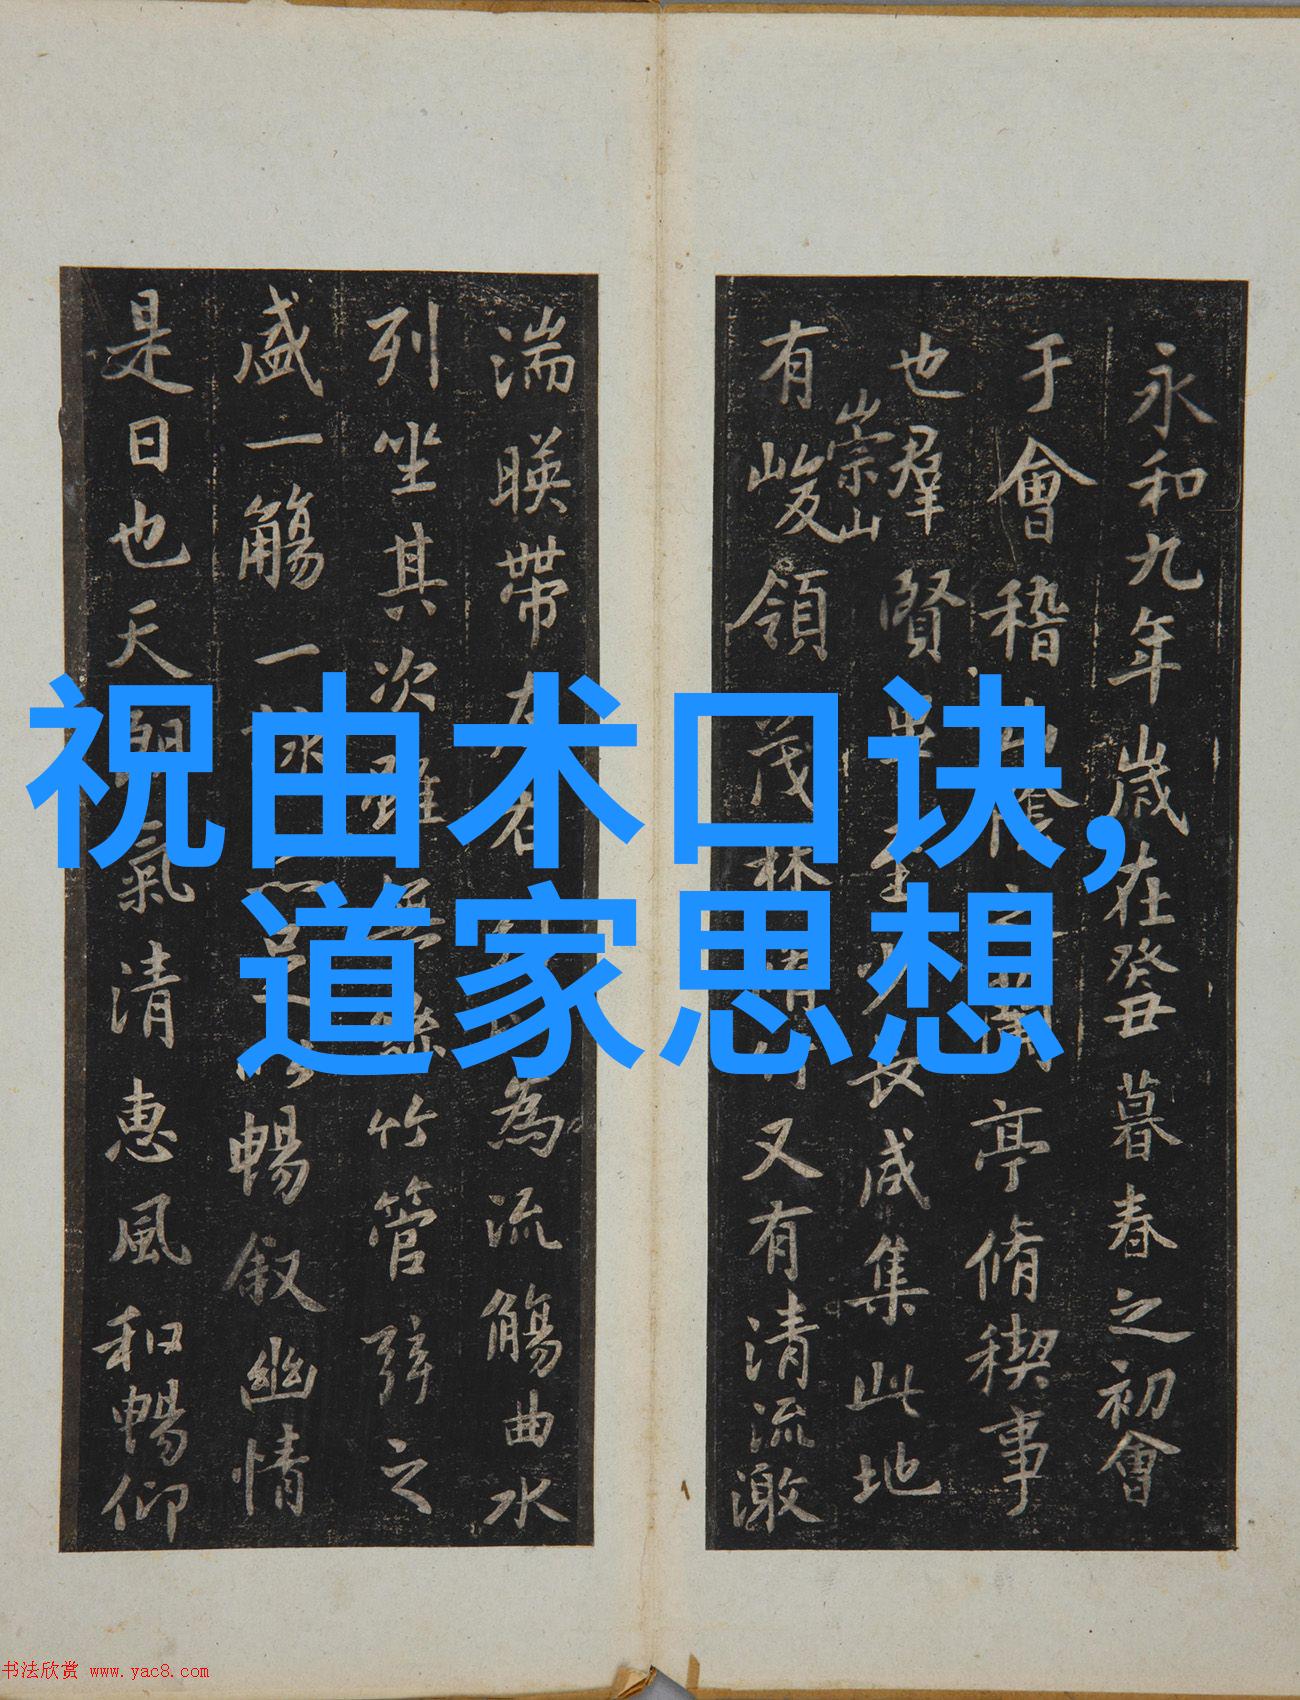 永和九年歲在癸丑暮春之初會
于會稽
亭脩稧事
也羣賢
咸集此地
崇山
有峻領茂林
又有清流激
湍暎帶左右
為流觴曲水
列坐其次雖無
竹管弦之
盛一觴一詠
暢叙幽情
是日也天朗氣清惠風和暢仰
祝由术口诀,
道家思想
书法欣赏 www.yac8.com